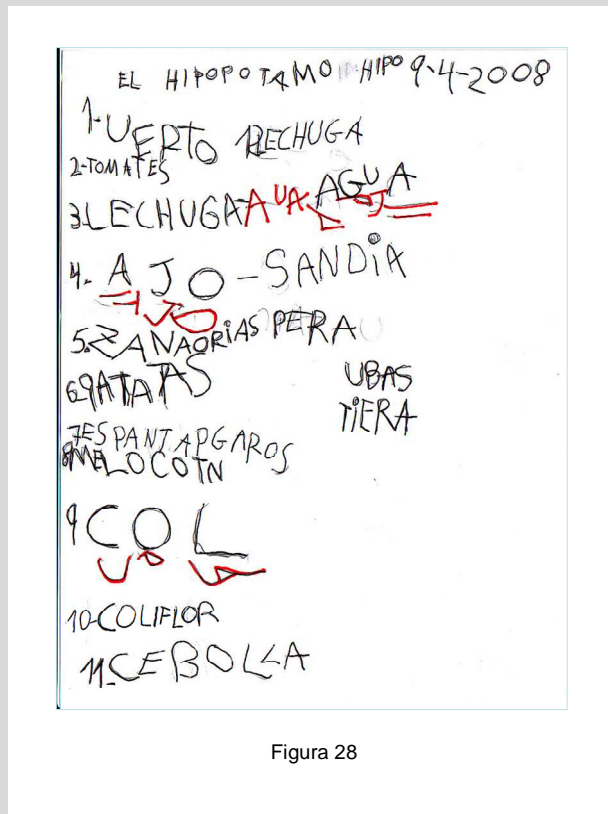 EL HIPOPOTAMO HIPO 9-4-2008
1-UERTO 12LECHUGA
2-TOMATES
3LECHUGA-AUA AGUA
4. AJO-SANDiA
AJO
5.ZANAORiAS PERA
6.PATATAS UBAS
TiERA
7ESPANTAPGAROS
8MELOCOTN
9COL
10-COLIFLOR
11.CEBOLLA
Figura 28